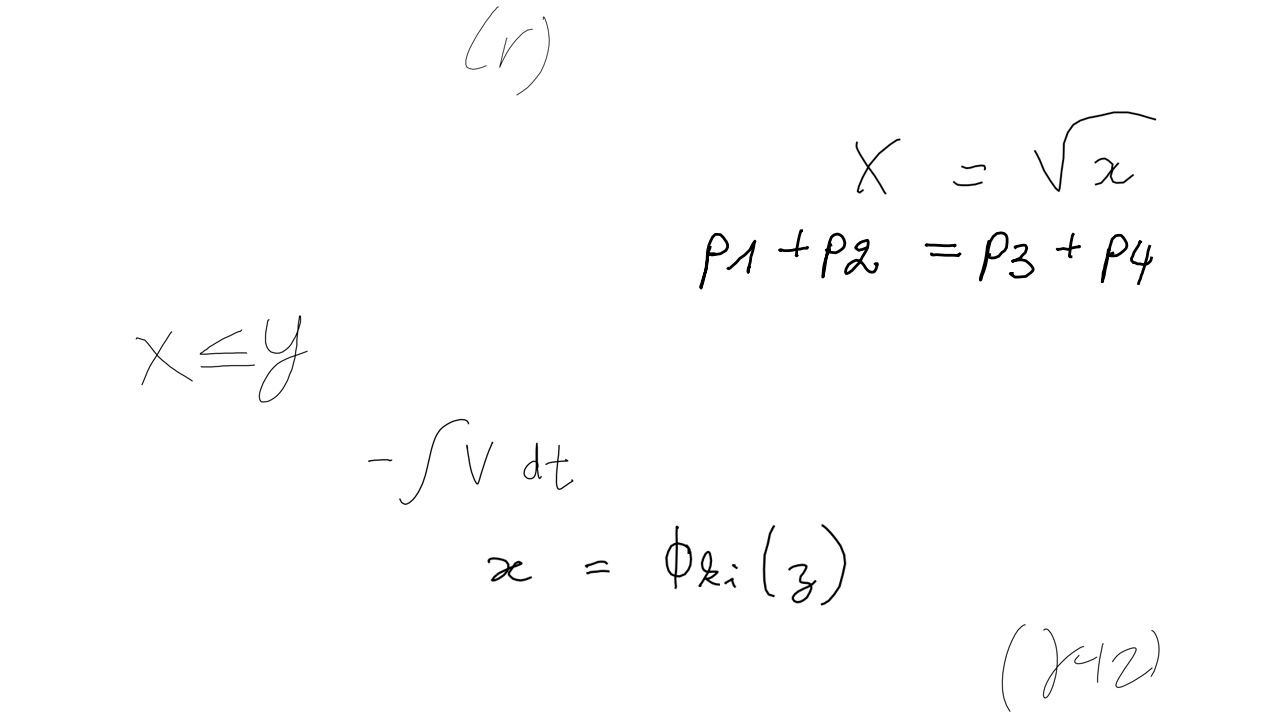 (r)
X = √x
p1 + p2 = p3 + p4
x ≤ y
- ∫ V dt
x = ϕki (z)